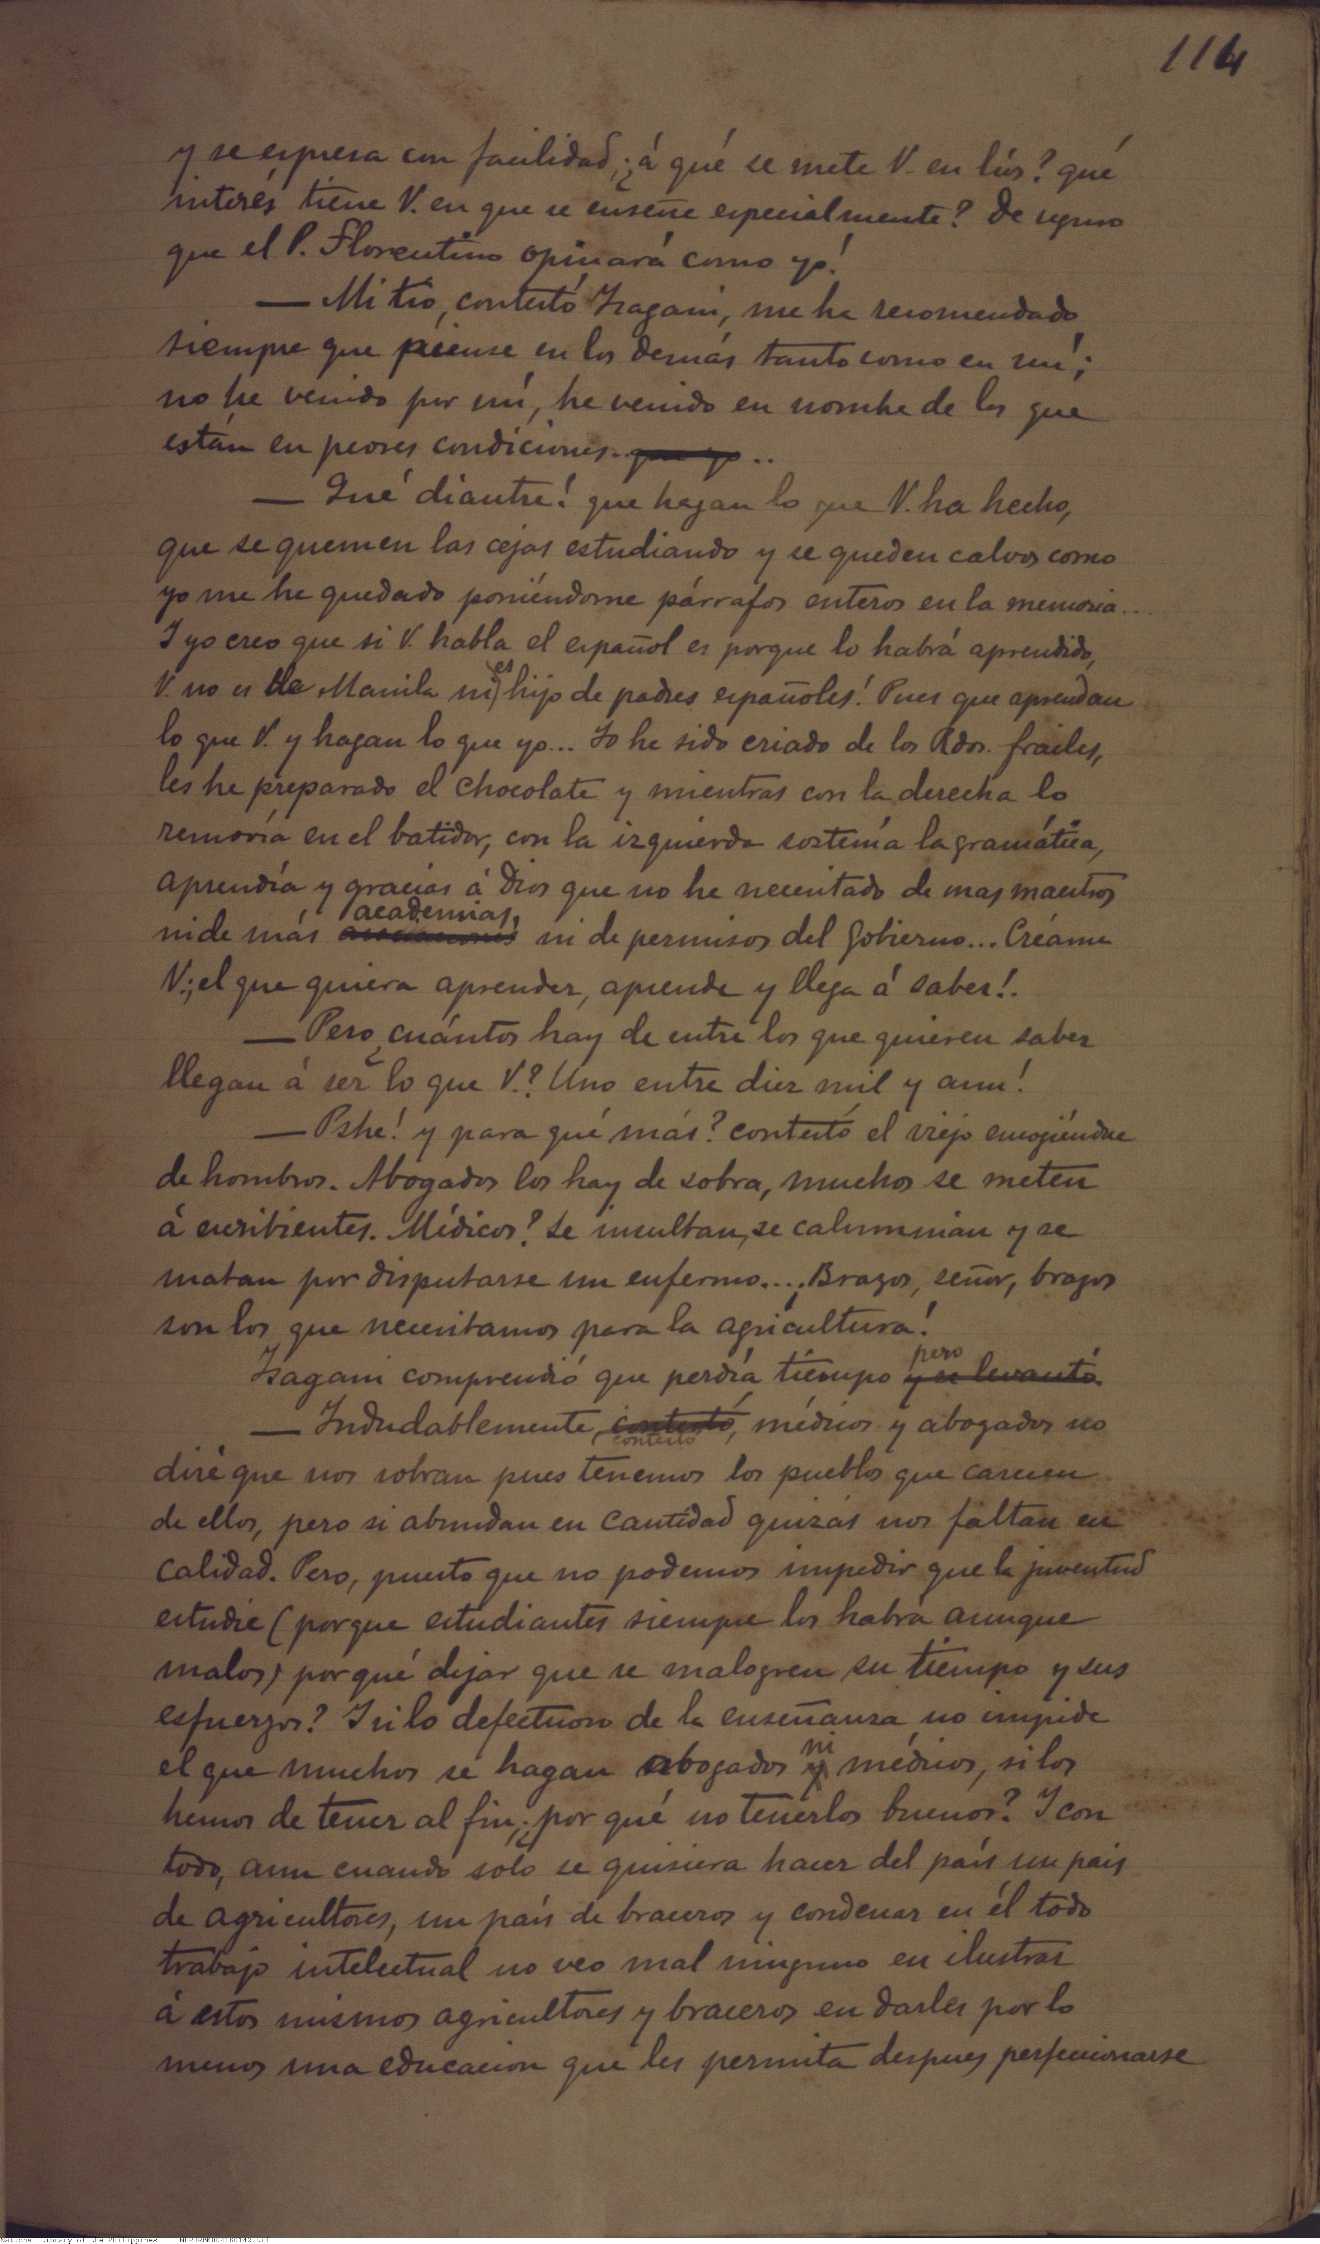 114
y se espresa con facilidad, ¿á qué se mete V. en líos? qué
interés tiene V. en que se enseñe especialmente? De seguro
que el P. Florentino opinará como yo!
— Mi tio, contestó Isagani, me ha recomendado
siempre que piense en los demás tanto como en mí;
no he venido por mí, he venido en nombre de los que
están en peores condiciones. que yo ..
— Qué diantre! que hagan lo que V. ha hecho,
que se quemen las cejas estudiando y se queden calvos como
yo me he quedado poniéndome párrafos enteros en la memoria...
Y yo creo que si V. habla el español es porque lo habrá aprendido,
V. no es de Manila ni es hijo de padres españoles! Pues que aprendan
lo que V. y hagan lo que yo... Yo he sido criado de los Rdos. frailes,
les he preparado el chocolate y mientras con la derecha lo
removía en el batidor, con la izquierda sostenía la gramática,
aprendía y gracias á Dios que no he necesitado de mas maestros
academias,
ni de más asociaciones ni de permisos del Gobierno... Créame
V.; el que quiera aprender, aprende y llega á saber!.
— Pero ¿cuántos hay de entre los que quieren saber
llegan á ser lo que V.? Uno entre diez mil y aun!
— Pshe! y para qué más? contestó el viejo encogiéndose
de hombros. Abogados los hay de sobra, muchos se meten
á escribientes. Médicos? se insultan, se calumnian y se
matan por disputarse un enfermo... ¡Brazos, señor, brazos
son los que necesitamos para la agricultura!
Isagani comprendió que perdía tiempo pero y se levantó.
— Indudablemente, contestó, contestó médicos y abogados no
diré que nos sobran pues tenemos los pueblos que carecen
de ellos, pero si abundan en cantidad quizás nos faltan en
calidad. Pero, puesto que no podemos impedir que la juventud
estudie (porque estudiantes siempre los habrá aunque
malos) por qué dejar que se malogren su tiempo y sus
esfuerzos? Y si lo defectuoso de la enseñanza no impide
el que muchos se hagan abogados ni y médicos, si los
hemos de tener al fin, ¿por qué no tenerlos buenos? Y con
todo, aun cuando solo se quisiera hacer del país un país
de agricultores, un país de braceros y condenar en él todo
trabajo intelectual no veo mal ninguno en ilustrar
á estos mismos agricultores y braceros en darles por lo
menos una educacion que les permita despues perfeccionarse